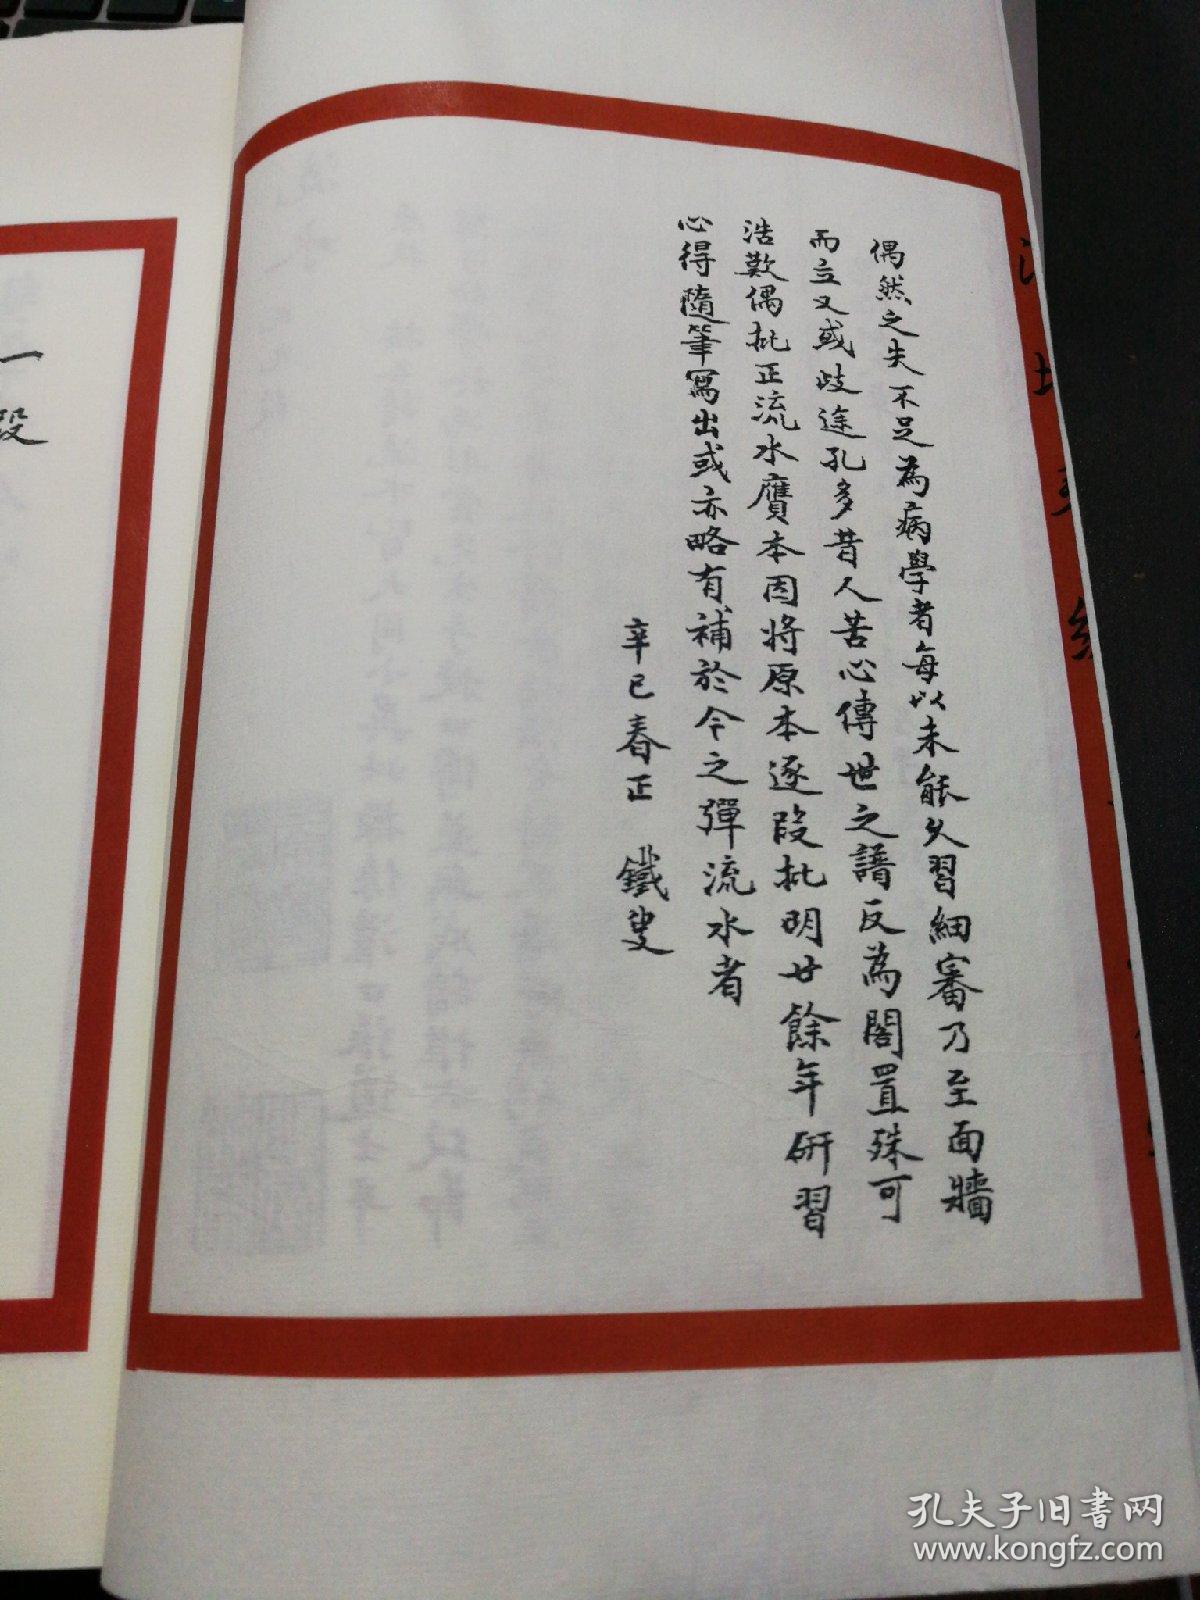 偶然之失不足為病學者每以未能久習細審乃至面牆
而立又或歧途孔多昔人苦心傳世之譜反為閣置殊可
浩歎偶批正流水贗本因將原本逐段批明廿餘年研習
心得隨筆寫出或亦略有補於今之彈流水者
辛巳春正 鐵叟
一段
孔夫子旧书网
www.kongfz.com